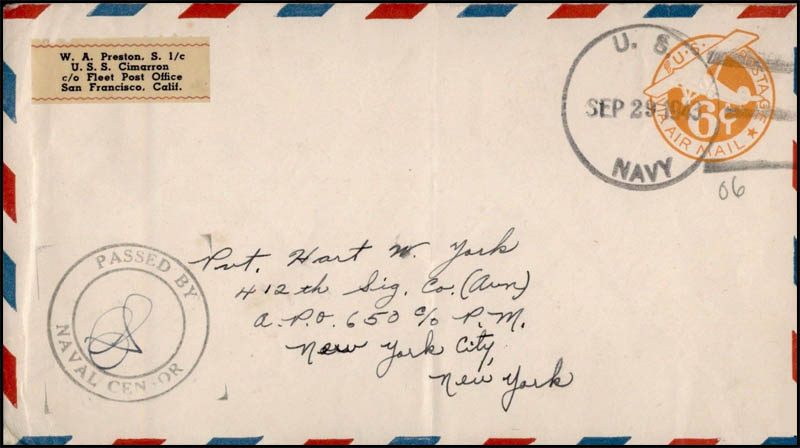 W. A. Preston, S. 1/c
U. S. S. Cimarron
c/o Fleet Post Office
San Francisco, Calif.
U. S.
SEP 29 1943
NAVY
U.S. POSTAGE
6¢
VIA AIR MAIL
06
PASSED BY
NAVAL CENSOR
Pvt. Hart W. York
412th Sig. Co. (Avn)
A.P.O. 650 c/o P.M.
New York City,
New York